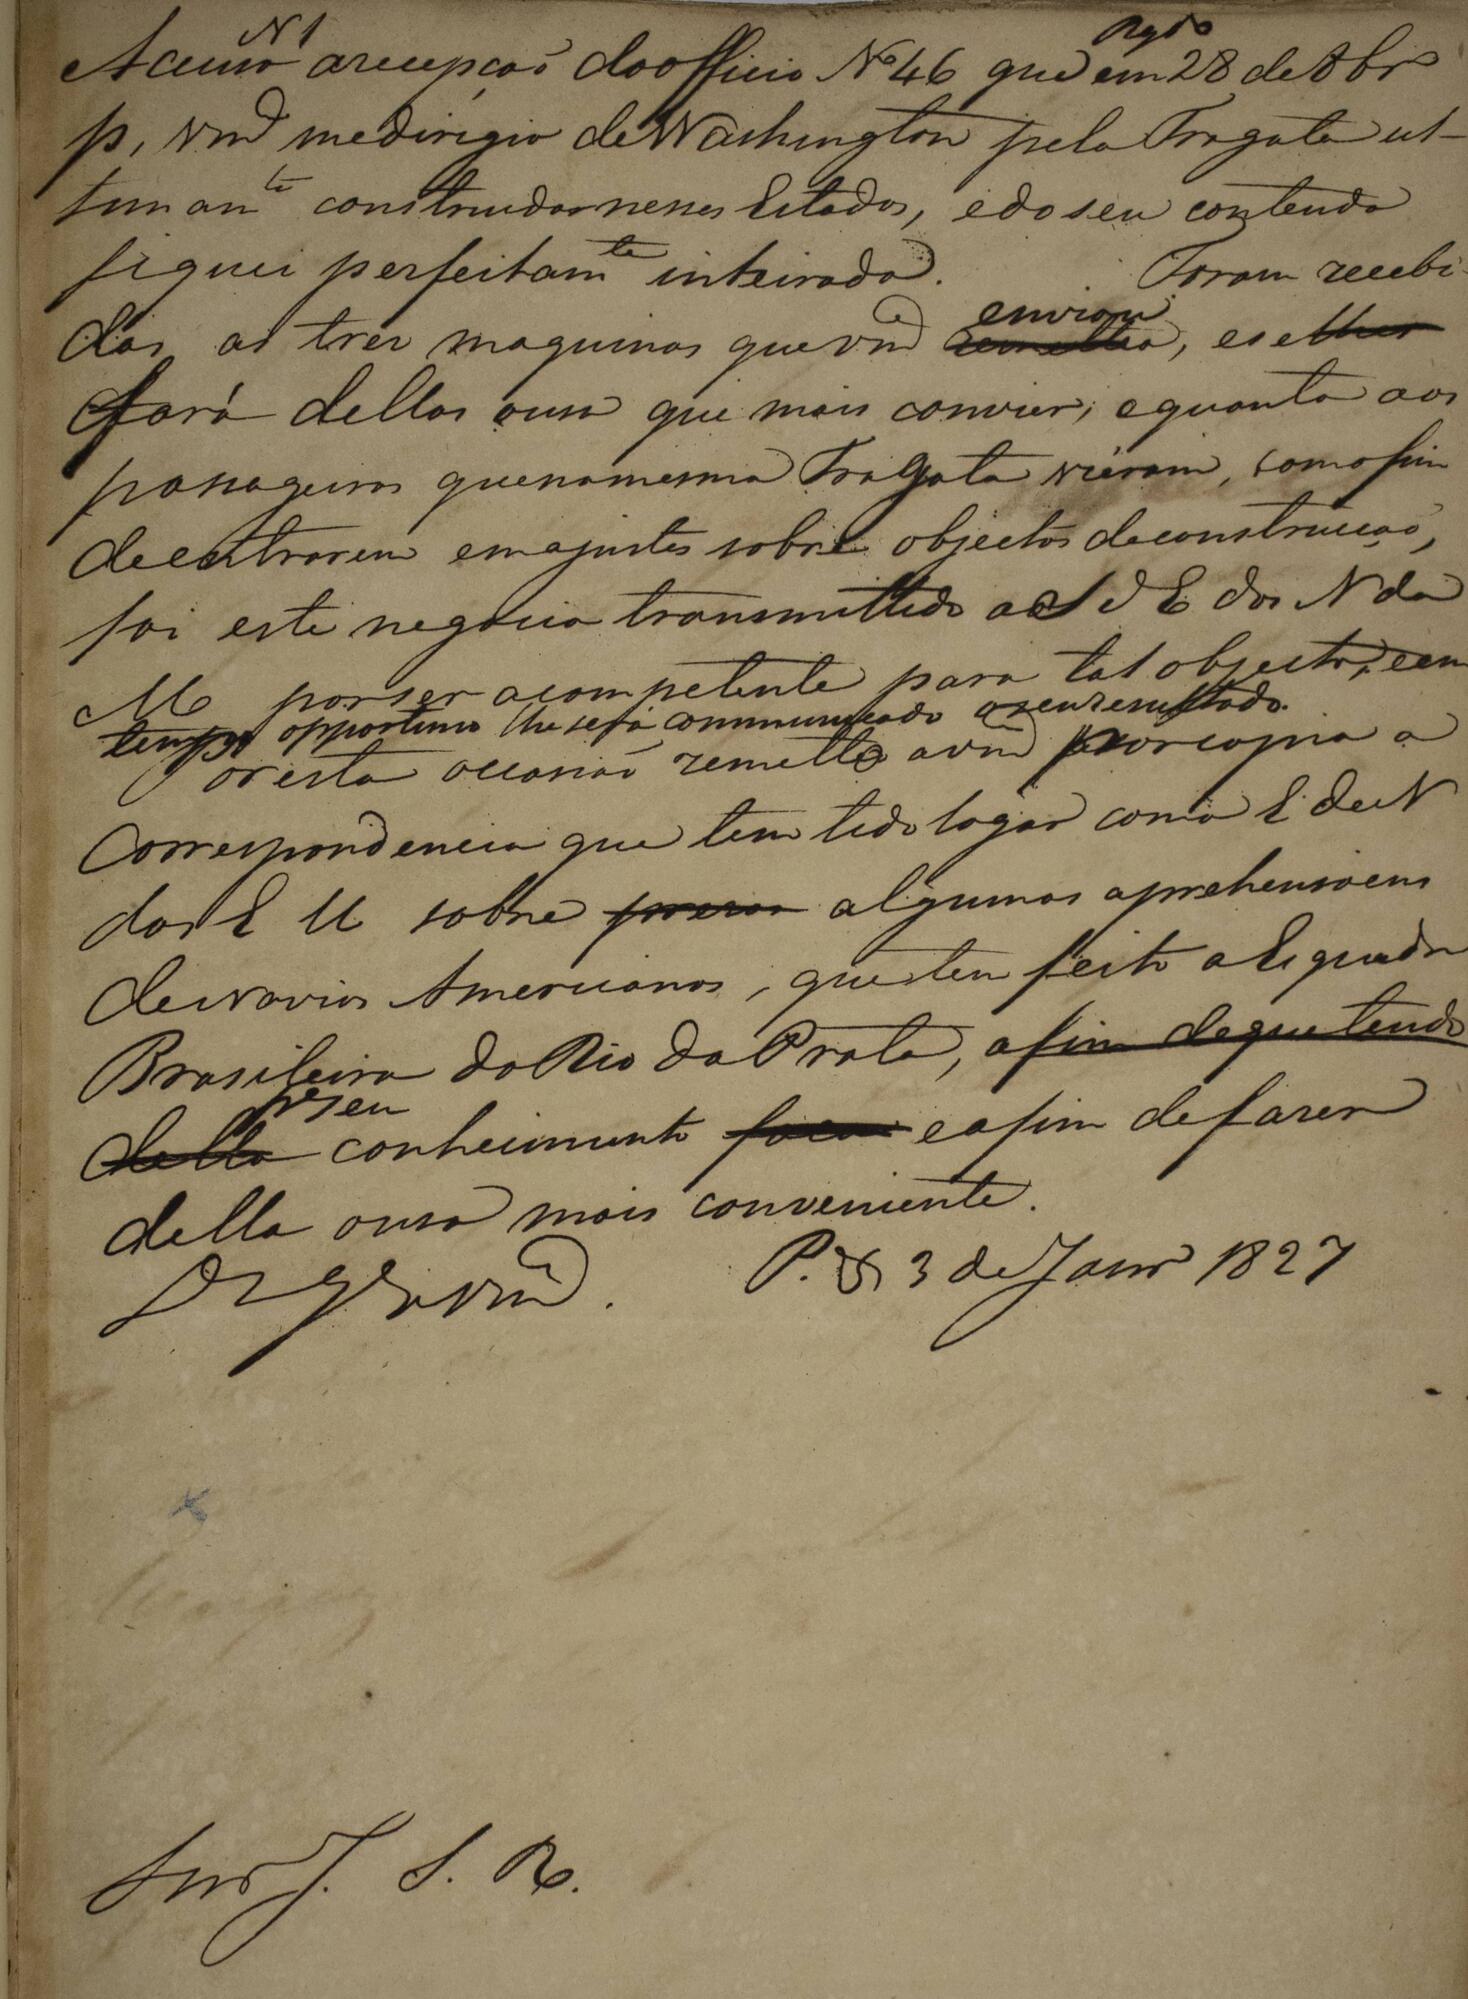 N 1
Rgdo
Acuso a recepçaõ do officio Nº 46 que em 28 de 8br
p, Vmce me dirigio de Washington pela Fragata ul-
timamte construida nesses Estados, e do seu contendo
fiquei perfeitamte inteirado. Foram recebi
das as tres maquinas que Vmce remetteo, e se lhes
enviou
fará dellas o uso que mais convier; e quanto aos
passageiros que na mesma Fragata vieram, com o fim
de entrarem em ajustes sobre objectos de construcçaõ,
foi este negocio transmittido ao S d E dos N da
M por ser a competente para tal objecto, e em
tempo opportuno lhe será communicado o seu resultado.
Por esta occasiaõ remetto a Vmce por copia a
Correspondencia que tem tido logar com o E de N
dos E U sobre prezas algumas aprehensoens
de Navios Americanos, que tem feito a Esquadra
Brasileira do Rio da Prata, a fim de que tendo
pa seu
della conhecimento faça e a fim de fazer
della o uso mais conveniente.
D G a Vmce. P. 3 de Janro 1827
Snr J. S. R.